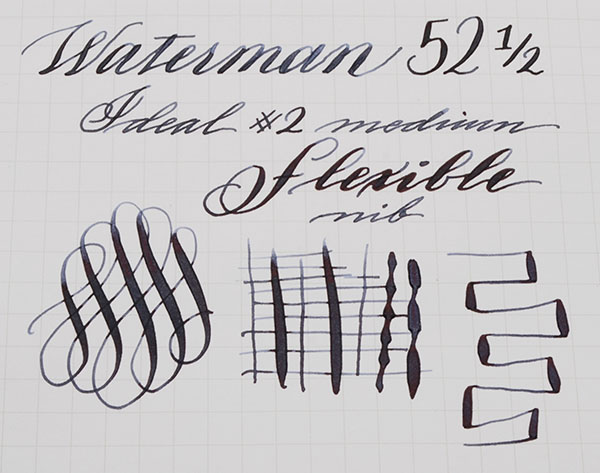 Waterman 52 1/2
Ideal #2 medium
Flexible
nib